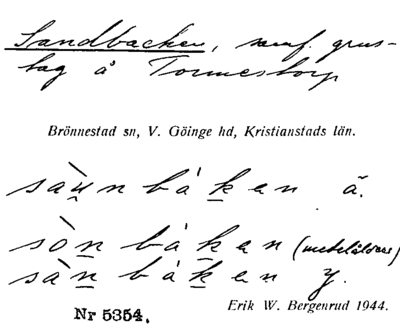 Sandbacken, samf. grus-
tag å Tormestorp
Brönnestad sn, V. Göinge hd, Kristianstads län.
sàu̯nbáken ä.
sònbáken (medelålders)
sànbáken y.
Erik W. Bergenrud 1944.
Nr 5354.